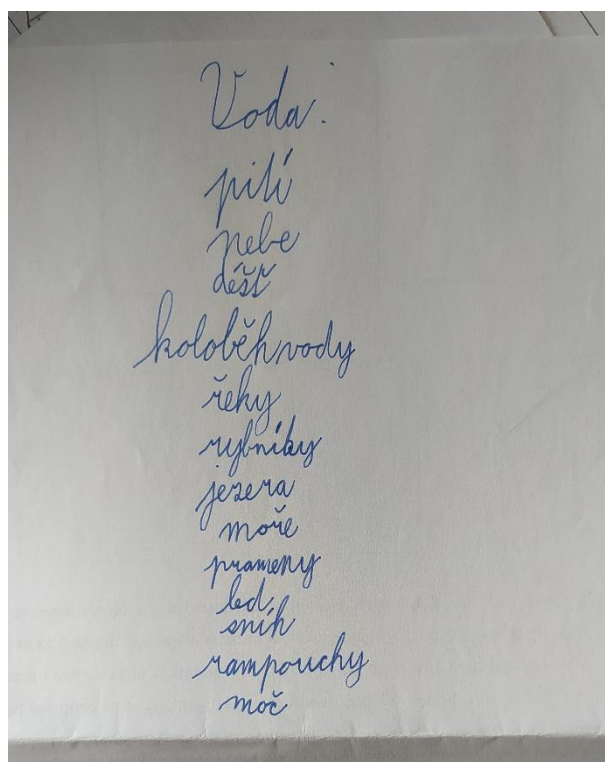 Voda:
pití
nebe
déšť
koloběh vody
řeky
rybníky
jezera
moře
prameny
led
sníh
rampouchy
moč